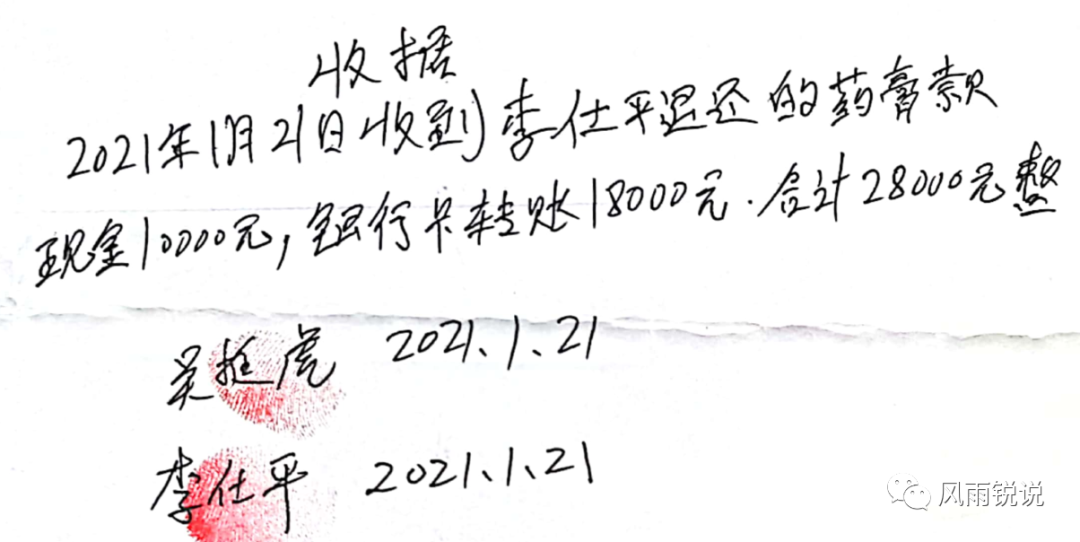 收据
2021年1月21日收到李仕平退还的药膏款
现金10000元,银行卡转账18000元.合计28000元整
吴挺虎 2021.1.21
李仕平 2021.1.21
风雨锐说